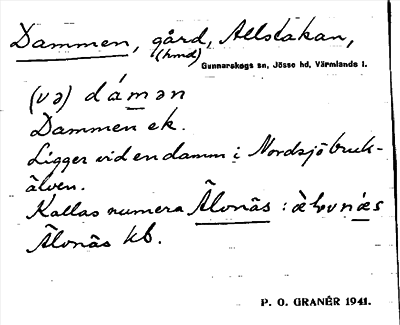 Dammen, gård, Allstakan,
(hmd)
Gunnarskogs sn, Jösse hd, Värmlands l.
(və) dámən
Dammen ek.
Ligger vid en damm i Nordsjöbruk-
älven.
Kallas numera Älvnäs : 
Älvnäs kb.
P. O. GRANÉR 1941.